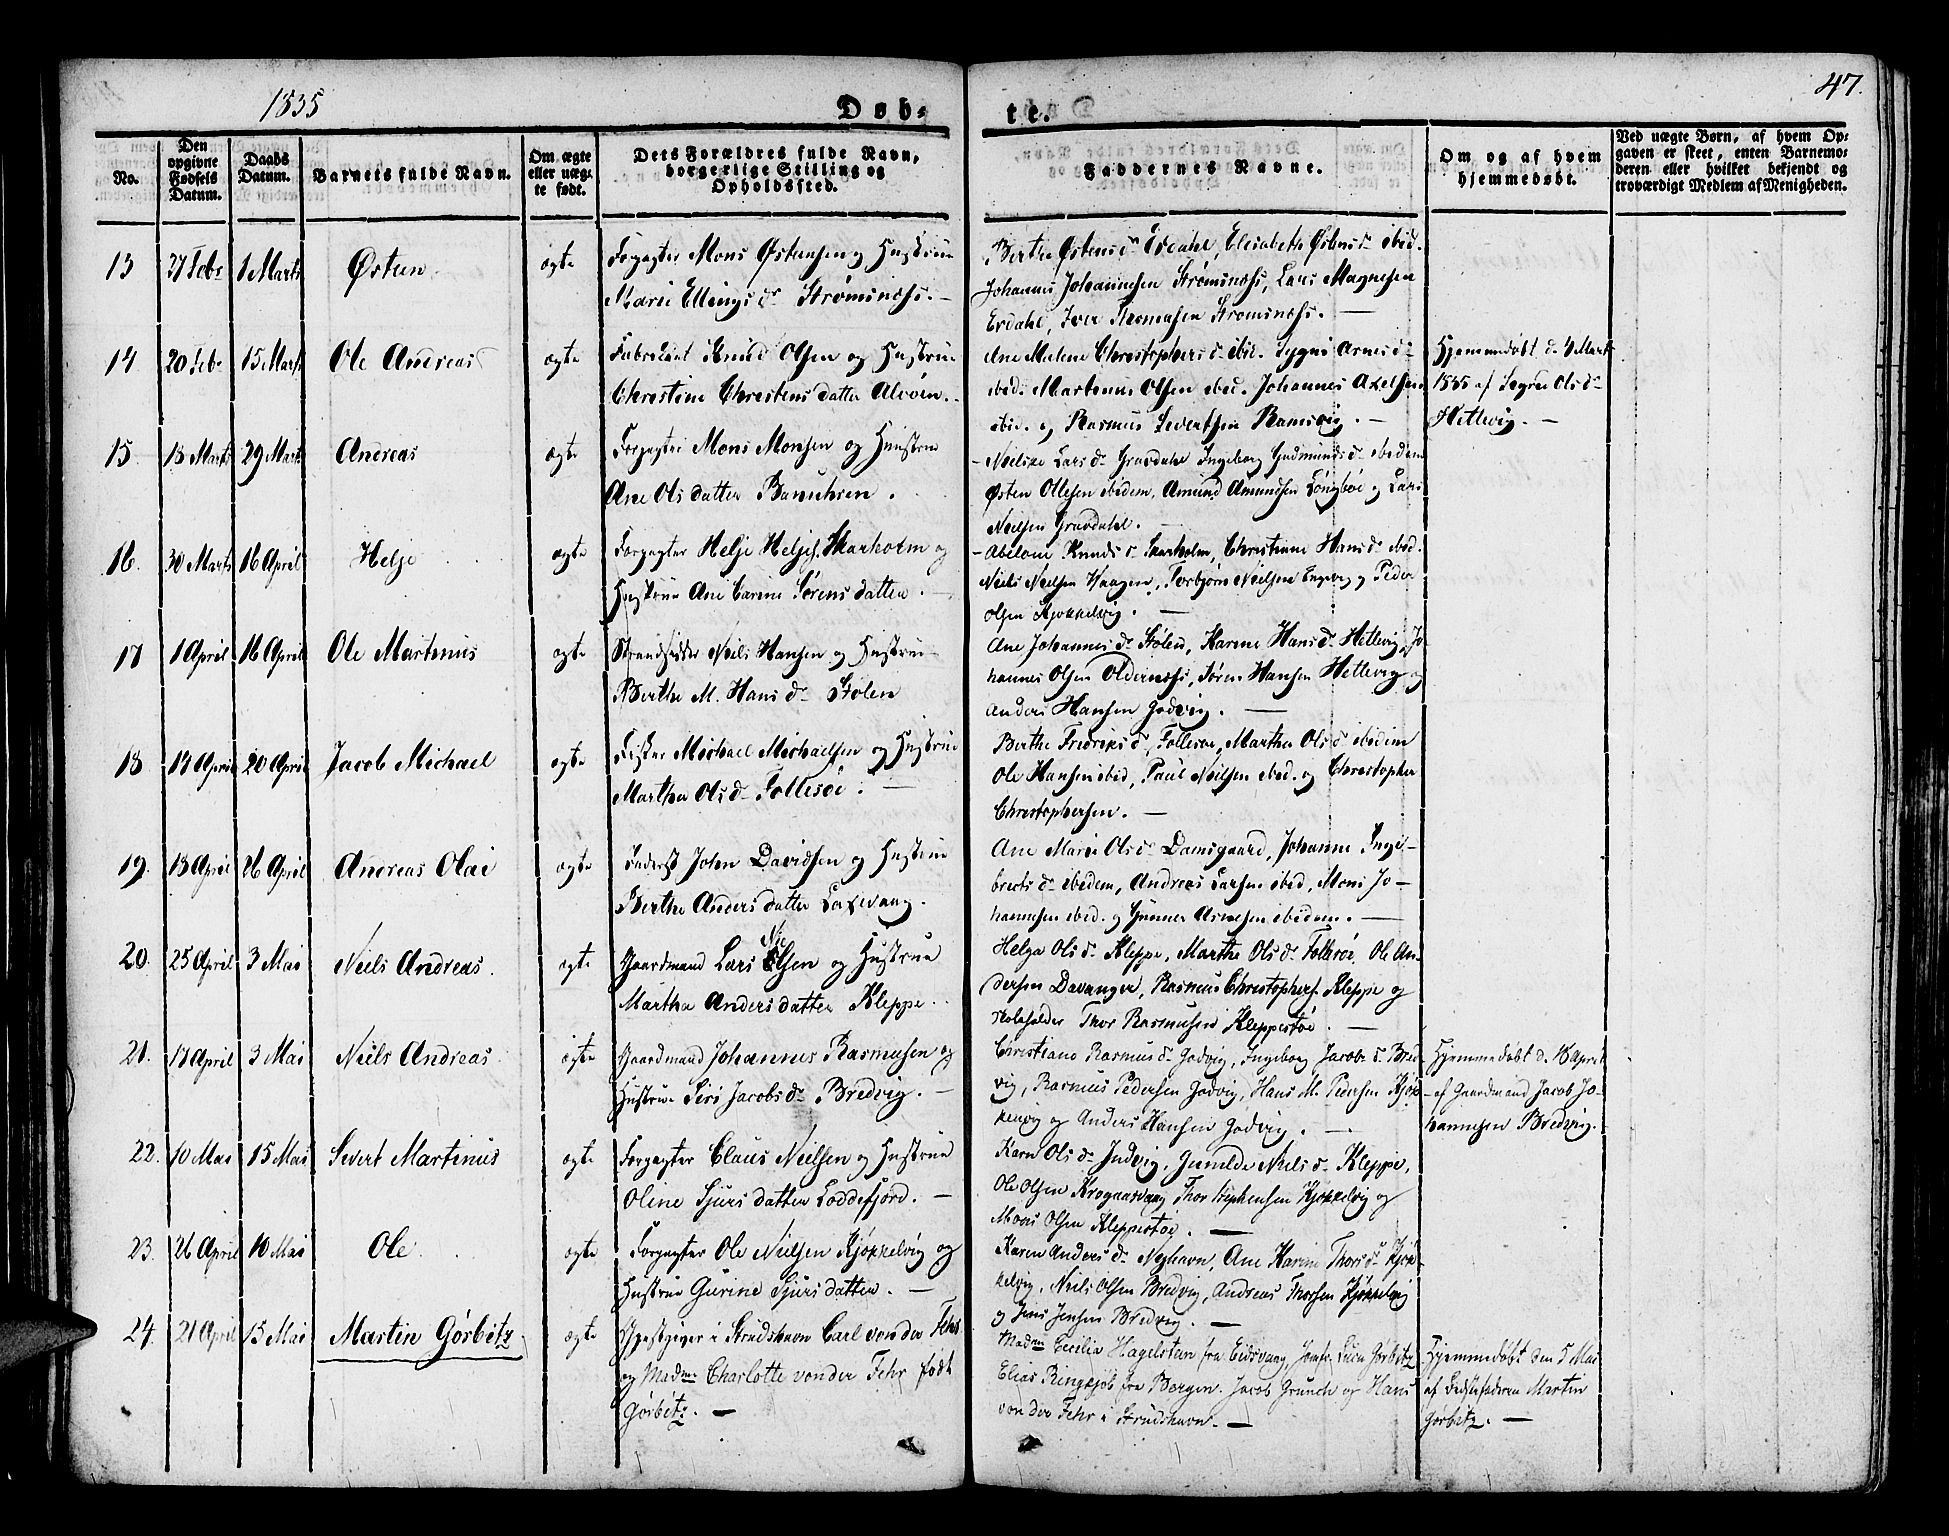 1835
Døb-
te.
47.
No.
Den opgivne Fødsels Datum.
Daabs Datum.
Barnets fulde Navn.
Om ægte eller uægte født.
Dets Forældres fulde Navn, borgerlige Stilling og Opholdssted.
Faddernes Navne.
Om og af hvem hjemmedøbt.
Ved uægte Børn, af hvem Opgaven er skeet, enten Barnemoderen eller hvilket bekjendt og troværdigt Medlem af Menigheden.
13 27 Feb. 1 Marts Østen ægte Forpagter Mons Østensen og Hustrue
Marie Ellings d. Strømsnæss.
Berthe Østens d. Erdahl, Elisabeth Østens d. ibid.
Johannes Johannesen Strømsnæss, Lars Magnesen
Erdahl, Iver Rasmusen Strømsnæss.
14 20 Feb. 15 Marts Ole Andreas ægte Fabrikant Knud Olsen og Hustrue
Christine Christens datter Alvøen.
Ane Malene Christophers d. ibid. Sygni Arnes d.
ibid. Martinus Olsen ibid. Johannes Axelsen
ibid. og Rasmus Severtsen Ramsvig.
Hjemmedøbt d. 4 Marts
1835 af Ols d.
Hetlevig.
15 18 Marts 29 Marts Andreas ægte Forpagter Mons Monsen og Hunstrue
Ane Ols datter
Lars d. Gravdahl Ingeborg Gudmunds d. ibidem
Østen Ollesen ibidem, Amund Amundsen og Lars
Neilsen Gravdahl.
16. 30 Marts 16 April Helje ægte Forpagter Helje Heljes. Skarholm og
Hustrue Ane Carine Sørens datter.
Abelone Knuds d. Skarholm, Christiane Hans d. ibid.
Niels Neilsen Haagen, Torbjørn Neilsen og Peder
Olsen Kjøkkelvig.
17 1 April 16 April Ole Martinus ægte Strandsidder Neils Hansen og Hustrue
Berthe M. Hans d. Stølen
Ane Johannes d. Stølen, Karine Hans d. Hetlevig, Jo-
hannes Olsen Oldernæss, Søren Hansen Hetlevig og
Anders Hansen Godvig.
18 14 April 20 April Jacob Michael ægte Fisker Michael Michaelsen og Hustrue
Martha Ols d. Follesøe.
Berthe Fredriks d. Follesøe, Martha Ols d. ibidem
Ole Hansen ibid, Paul Neilsen ibid. og Christopher
Christophersen.
19. 13 April 26 April Andreas Olai ægte Inderst John Davidsen og Hustrue
Berthe Anders datter Laxevaag.
Ane Marie Ols d. Damsgaard, Johanne Inge-
brects d. ibidem, Andreas Larsen ibid, Mons Jo-
hannesen ibid. og Gunner Arnesen ibidem.
20. 25 April 3 Mai Neils Andreas. ægte Gaardmand Lars Nielsen og Hustrue
Martha Anders datter Kleppe.
Helga Ols d. Kleppe, Marthe Ols d. Follesøe, Ole An-
dersen Davanger, Rasmus Christophers. Kleppe og
Skoleholder Thor Rasmusen Kleppestøe.
21. 17 April 3 Mai Neils Andreas. ægte Gaardmand Johannes Rasmusen og
Hustrue Siri Jacobs d. Bredvig.
Christiane Rasmus d. Godvig, Ingeborg Jacobs d. Bred-
vig, Rasmus Pedersen Godvig, Hans M. Pedersen Kjøk-
kelvig og Anders Hansen Godvig.
Hjemmedøbt d. 18 April
af Gaardmand Jacob Jo-
hannesen Bredvig.
22. 10 Mai 15 Mai Severt Martinus ægte Forpagter Claus Neilsen og Hustrue
Oline Sjurs datter Loddefjord.
Karn Ols d. Indvig, Gunilde Niels d. Kleppe,
Ole Olsen Krogaasvaag, Thor Stephensen Kjøkkelvig og
Mons Olsen Kleppestøe.
23. 26 April 10 Mai Ole ægte Forpagter Ole Neilsen Kjøkkelvig og
Hustrue Gurine Sjurs datter.
Karen Anders d. Nyhavn, Ane Karine Thors d. Kjøk-
kelvig, Neils Olsen Bredvig, Andreas Thorsen Kjøkkelvig
og Jens Jensen Bredvig.
24. 21 April 15 Mai Martin Görbitz ægte Gjestgiver i Strudshavn Carl von der Fehr
og Madme Charlotte von der Fehr født
Görbitz.
Madme Cecilia Hagelsteen fra Eidsvaag, Jomfr. Lucie Görbitz
Elias Ringsjøb fra Bergen. Jacob Grunch og Hans
von der Fehr i Strudshavn.
Hjemmedøbt den 5 Mai
af Bedstefaderen Martin
Görbitz.